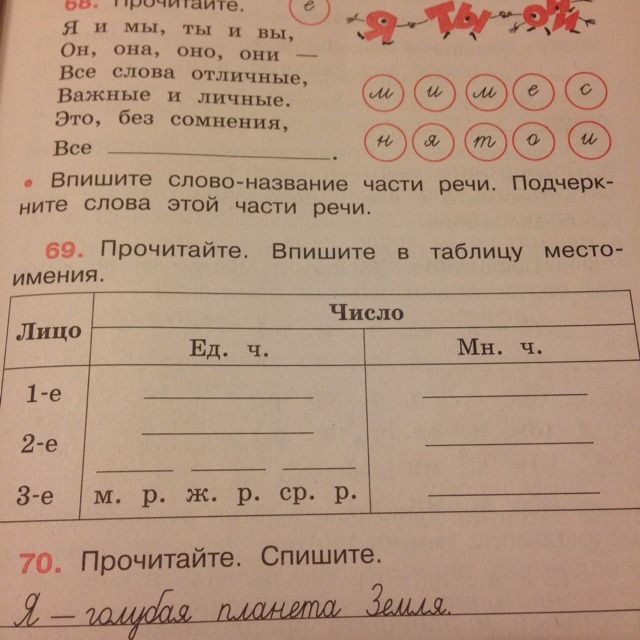 68. Прочитайте.
е
Я ТЫ ОН
Я и мы, ты и вы,
Он, она, оно, они —
Все слова отличные,
Важные и личные.
Это, без сомнения,
Все .
м и м е с
н я т о и
• Впишите слово-название части речи. Подчерк-
ните слова этой части речи.
69. Прочитайте. Впишите в таблицу место-
имения.
Лицо Число
Ед. ч. Мн. ч.
1-е
2-е
3-е м. р. ж. р. ср. р.
70. Прочитайте. Спишите.
Я — голубая планета Земля.